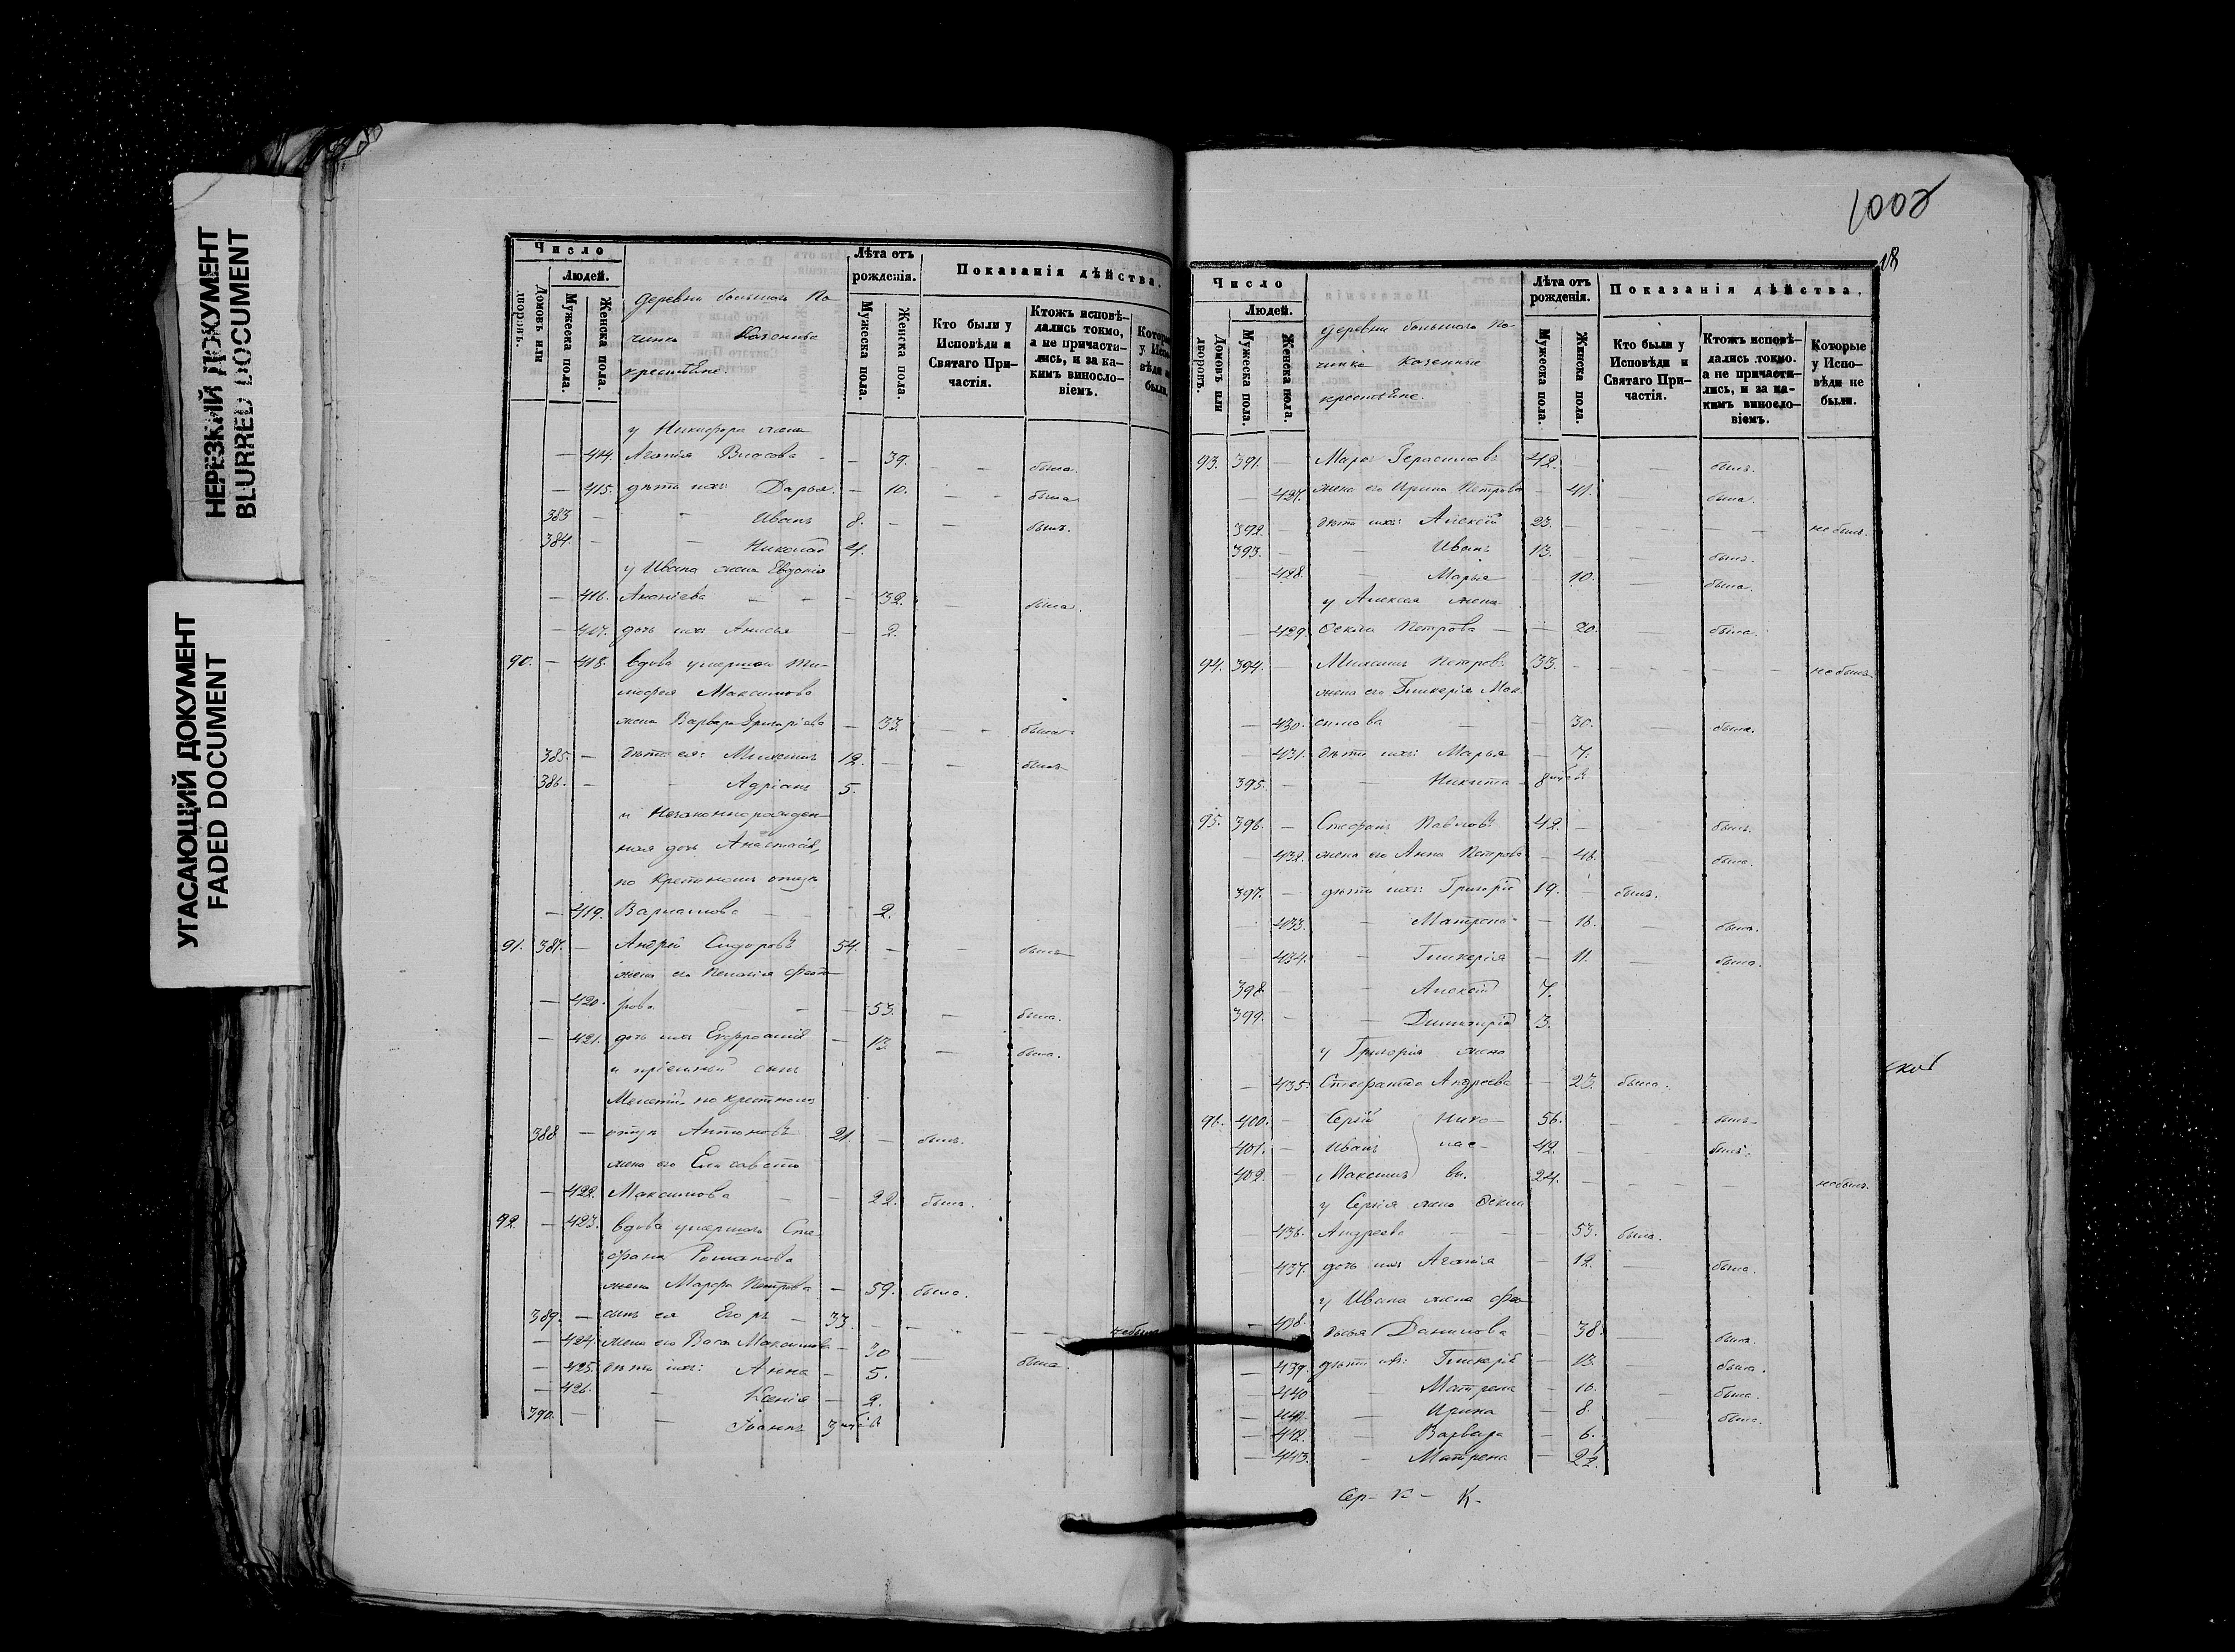 НЕРЕЗКИЙ ДОКУМЕНТ
BLURRED DOCUMENT
УГАСАЮЩИЙ ДОКУМЕНТ
FADED DOCUMENT
Число
Людей.
Домовъ или дворовъ.
Мужеска пола.
Женска пола.
деревни большого По-
чинка Казенные
крестьяне
Лѣта отъ
рожденія.
Мужеска пола.
Женска пола.
Показанія дѣйства.
Кто были у
Исповѣди и
Святаго При-
частія.
Ктожъ исповѣ-
дались токмо,
а не причасти-
лись, и за ка-
кимъ винсло-
віемъ.
у Никифора жена
— 414. Агапія Власова — 39. — — была.
— 415. дѣти ихъ: Дарья. — 10. — — была
383 — — Иванъ 8. — — былъ.
384. — — Николай 4.
у Ивана жена Евдокія
— 416. — — — 32. — была.
— 417. дочь ихъ Анисья — 2.
90. — 418. вдова умершаго Ти-
мофея Максимова
жена Варвара Григоріева — 33. — — была
385. — дѣти ея: Михаилъ 12. — — былъ
386. — — Адріанъ 5.
и Незаконнорожден-
ная дочь Анастасія,
по крестномъ отцѣ
— 419. — — 2.
91. 387. — Андрей Сидоровъ 54. — — былъ
жена его Пелагія Фео-
— 420. — — — 53. — была.
— 421. дочь ихъ Евфросинія — 13. — была.
и пріемный сынъ
по крестномъ
388 — отцѣ Антоновъ 21 — былъ.
жена его Елисавета
— 422. Максимова — — 22. была.
92. — 423. вдова умершаго Сте-
фана Романова
жена Марфа Петрова — 59. была.
389. — сынъ ея Егоръ — 33. — — — — не былъ
— 424. жена его Васса Максимова — 30 — была.
— 425. дѣти ихъ: Анна — 5.
— 426. — Ксенія — 2.
390. — — Іоаннъ 3
1002
18
Число
Людей.
Домовъ или дворовъ.
Мужеска пола.
Женска пола.
деревни большого По-
чинка казенные
крестьяне.
Лѣта отъ
рожденія.
Мужеска пола.
Женска пола.
Показанія дѣйства.
Кто были у
Исповѣди и
Святаго При-
частія.
Ктожъ исповѣ-
дались токмо.
а не причасти-
лись, и за ка-
кимъ винсло-
віемъ.
Которые
у Испо-
вѣди не
были.
93. 391. — Марко Герасимовъ 42. — — былъ.
— 427. жена его Ирина Петрова — 41. — была
392. — дѣти ихъ: Алексій 23. — — — — не былъ.
393. — — Иванъ 13. — былъ.
428. — Марья — 10. — была.
у Алексія жена
— 429. Петрова — — 20. — была.
94. 394. — Михаилъ Петровъ 33. — — — — не былъ
жена его Гликерія Мак-
— 430. симова — — 30. — была.
— 431. дѣти ихъ: Марья — 7.
395. — — Никита — 8
95. 396. — Стефанъ Павловъ 42. — — былъ.
— 432. жена его Анна Петрова — 46. — была.
397. — дѣти ихъ: Григорій 19. — былъ.
433. — Матрена — 16. — была.
434. — Гликерія — 11. — была.
398. — — Алексій 7.
399. — — Димитрій 3.
у Григорія жена
— 435. Стефанида Андреева — 23. была.
96. 400. — Сергій Нико- 56. — — былъ
401. — Иванъ лае- 42. — — былъ.
402. — Максимъ вы. 24. — — — — не былъ.
у Сергія жена
436. Андреева — — 53. была.
437. дочь ихъ Агапія — 12. — была.
у Ивана жена Фео-
— 438. досья Данилова — 38. — была.
— 439. дѣти ихъ: Гликерія — 13. — была.
— 440 — Матрена — 10. — была.
— 441. — Ирина — 8. — была.
— 442. — Варвара — 6.
— 443. — Матрена —